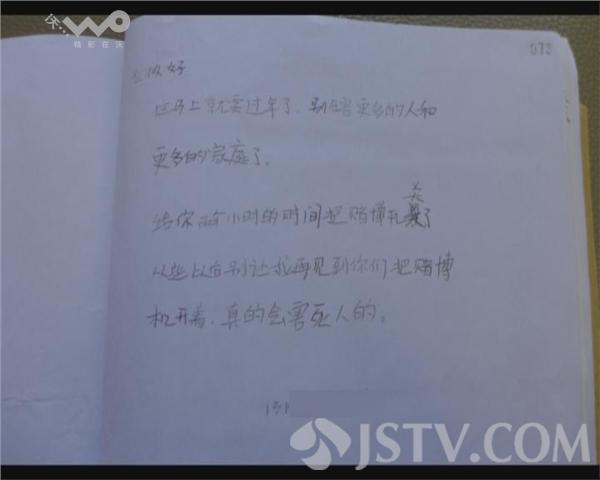 精彩在沃
072
老板好
这马上就要过年了,别在害更多的人和
更多的家庭了。
给你两个小时的时间把赌博机关了
从些以后别让我再见到你们把赌博
机开着,真的会害死人的。
131
JSTV.COM